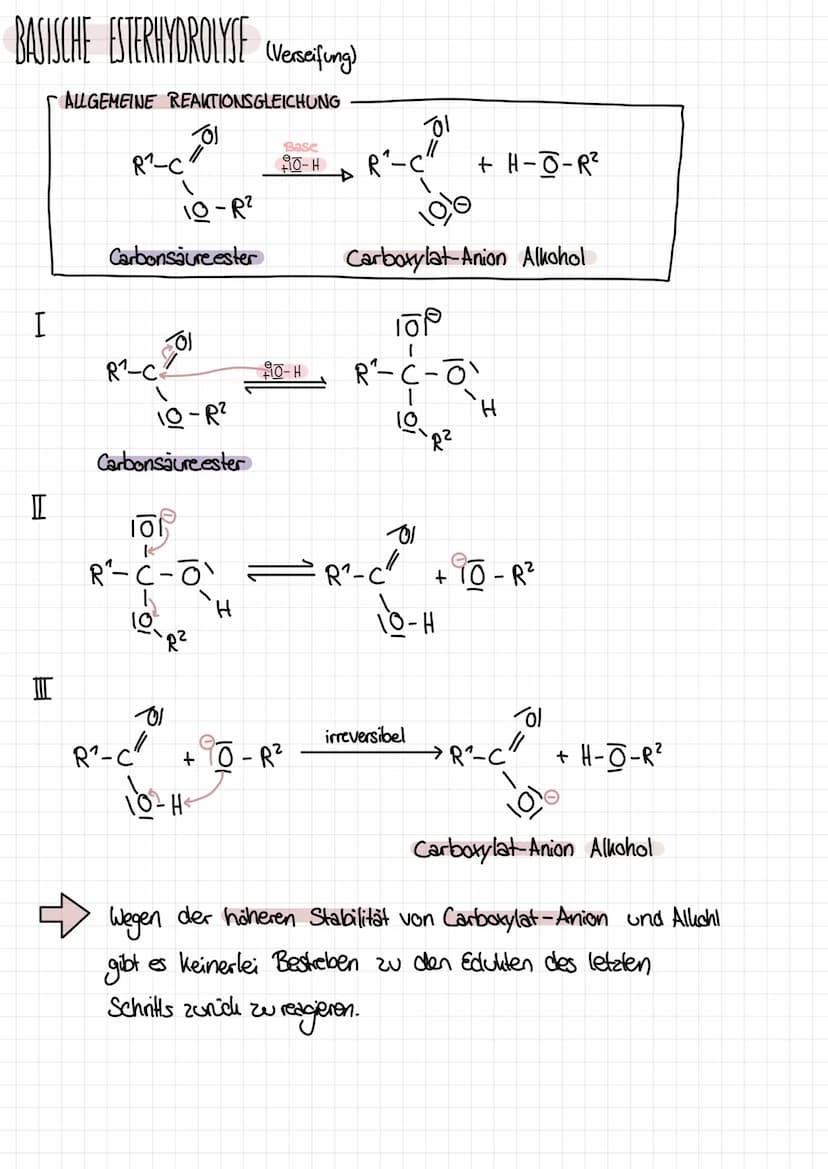 BASISCHE ESTERHYDROLYSE (Verseifung)
ALLGEMEINE REAKTIONSGLEICHUNG
R¹–C
O
O–R²
Base
⊖O–H
R¹–C
O
O⊖
+ H–O–R²
Carbonsäureester
Carboxylat-Anion Alkohol
I
R¹–C
O
O–R²
⊖O–H
O⊖
R¹–C–O
H
O
R²
Carbonsäureester
II
O⊖
R¹–C–O
H
O
R²
R¹–C
O
O–H
+ ⊖O–R²
III
R¹–C
O
O–H
+ ⊖O–R²
irreversibel
R¹–C
O
O⊖
+ H–O–R²
Carboxylat-Anion Alkohol
Wegen der höheren Stabilität von Carboxylat-Anion und
gibt es keinerlei Bestreben zu den Edukten des letzten
Schritts zurück zu reagieren.